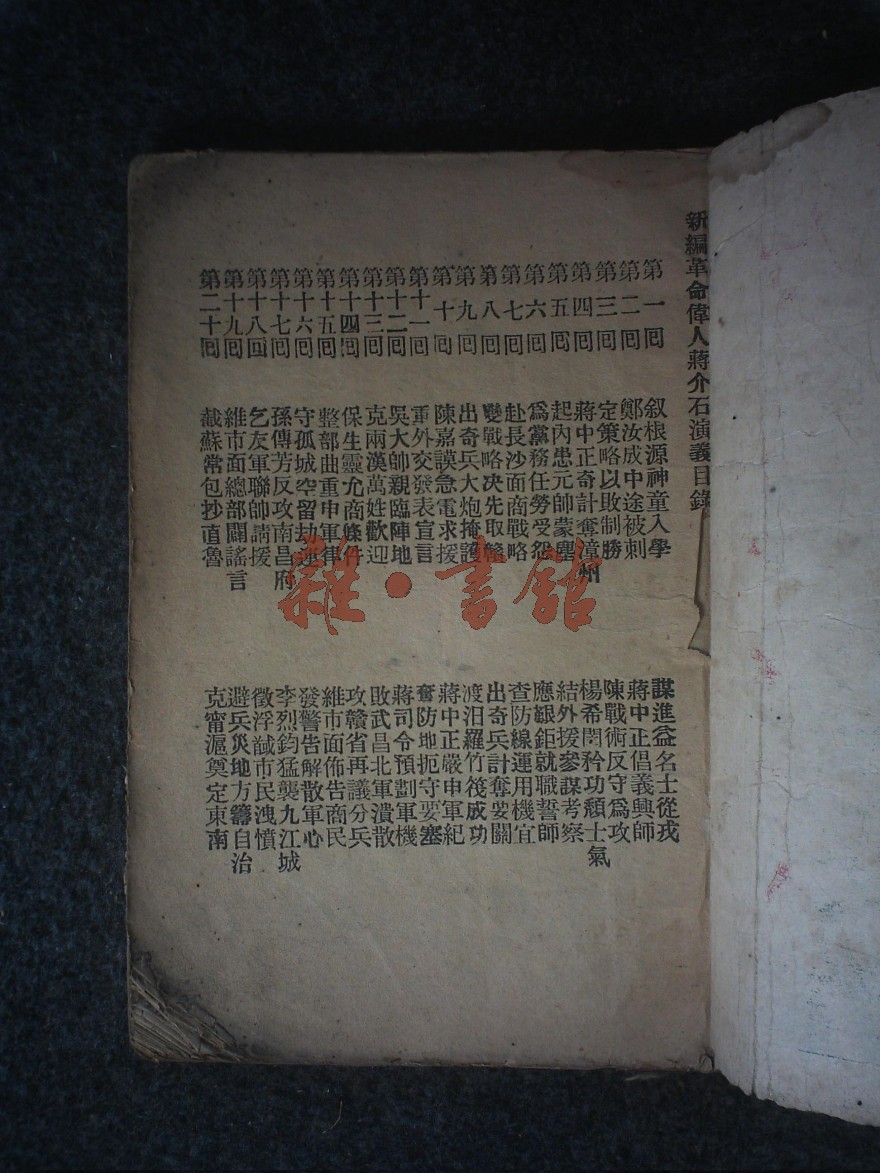 新編革命偉人蔣介石演義目錄
第一回 叙根源神童入學 謀進益名士從戎
第二回 鄭汝成中途被刺 蔣中正倡義興師
第三回 定策略以敗制勝 陳戰術反守爲攻
第四回 蔣中正奇計奪漳州 楊希閔矜功頹士氣
第五回 起內患元帥蒙塵 結外援參謀考察
第六回 爲黨務任勞受怨 應艱鉅就職誓師
第七回 赴長沙面商戰略 查防線運用機宜
第八回 變戰略决先取贛 出奇兵計奪要關
第九回 出奇兵大炮掩護 渡汨羅竹筏成功
第十回 陳嘉謨急電求援 蔣中正嚴申軍紀
第十一回 重外交發表宣言 奪防地扼守要塞
第十二回 吳大帥親臨陣地 蔣司令預劃軍機
第十三回 克兩漢萬姓歡迎 敗武昌北軍潰散
第十四回 保生靈尤商條件 攻贛省再議分兵
第十五回 整部曲重申軍律 維市面佈告商民
第十六回 守孤城空留劫運 發警告解散軍心
第十七回 孫傳芳反攻南昌府 李烈鈞猛襲九江城
第十八回 乞友軍聯帥請援 徵浮鹹市民洩憤
第十九回 維市面總部闢謠言 避兵災地方籌自治
第二十回 截蘇常包抄直魯 克甯滬奠定東南
雜·書館